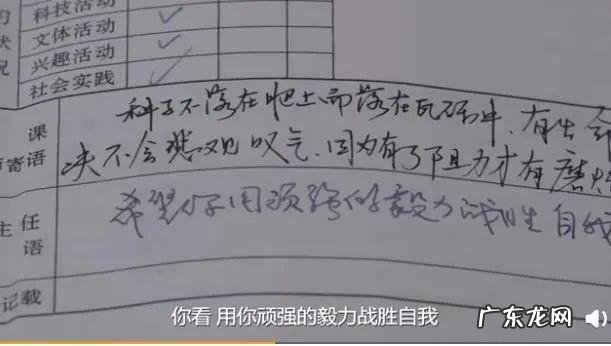 科技活动
文体活动
兴趣活动
社会实践
况
课
寄语
种子不落在肥土而落在瓦砾中,有生
决不会悲观叹气,因为有了阻力才有磨
主任
语
希望你用顽强的毅力战胜自我
记载
你看 用你顽强的毅力战胜自我
广东龙网